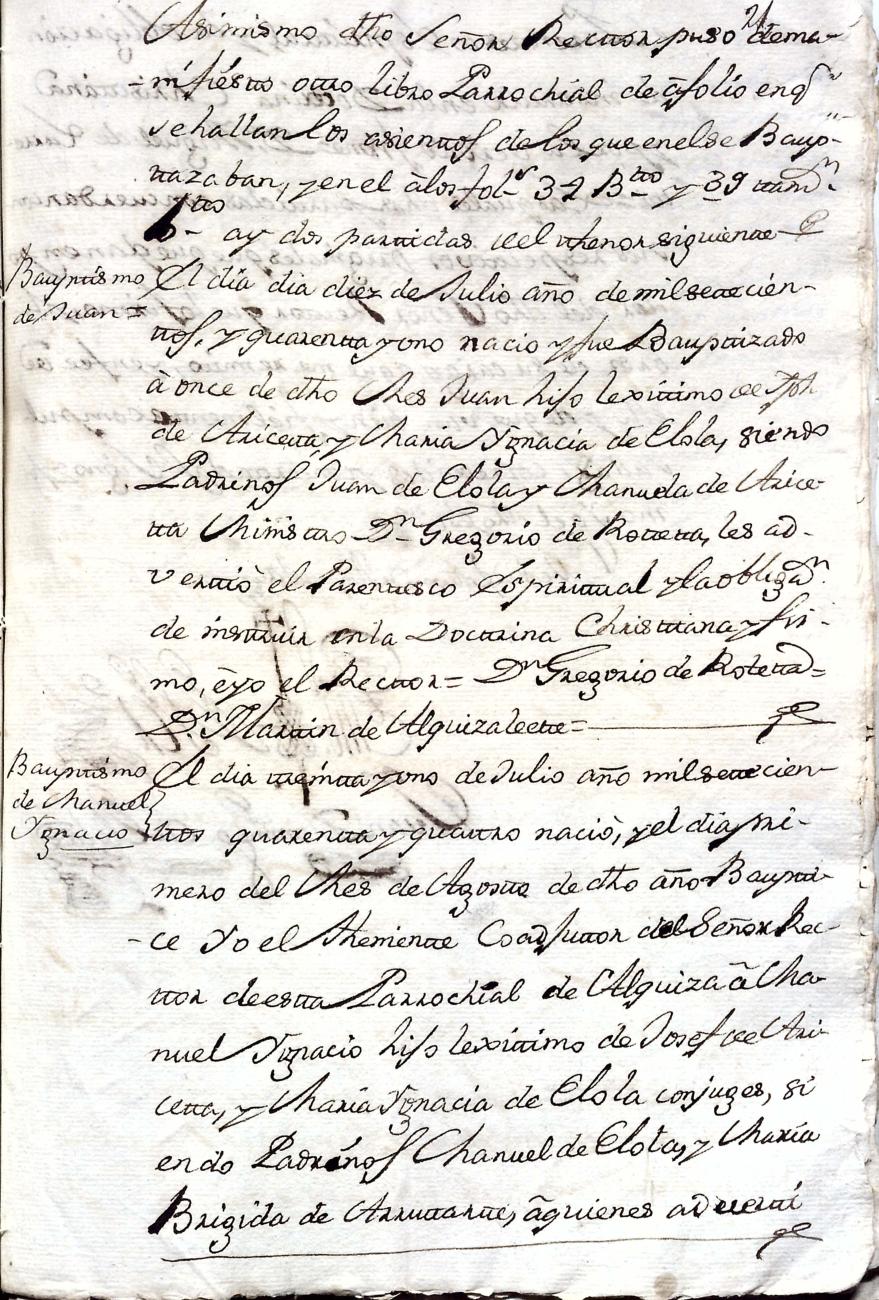 21
Asimismo dho Señor Recttor puso dema-
nifiestto ottro libro Parrochial de à folio en q
se hallan los asienttos de los que en el se Baup-
ttazaban, y en el à los fol.s 34 B.tto y 39 ttam.n
B.tto ay dos parttidas del thenor siguientte
Bauptismo
de Juan =
El dia dia diez de Julio año de mil settecien-
ttos, y quarentta y uno nacio y fue Bauptizado
à once de dho Mes Juan hijo lexittimo de Jph
de Aricetta, y Maria Ygnacia de Elola, siendo
Padrinos Juan de Elola y Manuela de Arice-
tta Ministtro D.n Gregorio de Rotetta, les ad-
verttiò el Parenttesco Espirittual y la obligaz.n
de insttruir en la Docttrina Christtiana y fir-
mo, è yo el Recttor = D.n Gregorio de Rotetta =
D.n Marttin de Alquizalette =
Bauptismo
de Manuel
Ygnacio
El dia tteintta y uno de Julio año mil settecien-
ttos quarentta y quattro naciò, y el dia pri-
mero del Mes de Agostto de dho año Baupti-
ce Yo el Thenientte Coadjuttor del Señor Rec-
ttor de estta Parrochial de Alquiza à Ma-
nuel Ygnacio hijo lexittimo de Josef de Ari-
cetta, y Maria Ygnacia de Elola conjuges, si
endo Padrinos Manuel de Elola, y Maria
Brigida de Arruttartte, à quienes adverttí